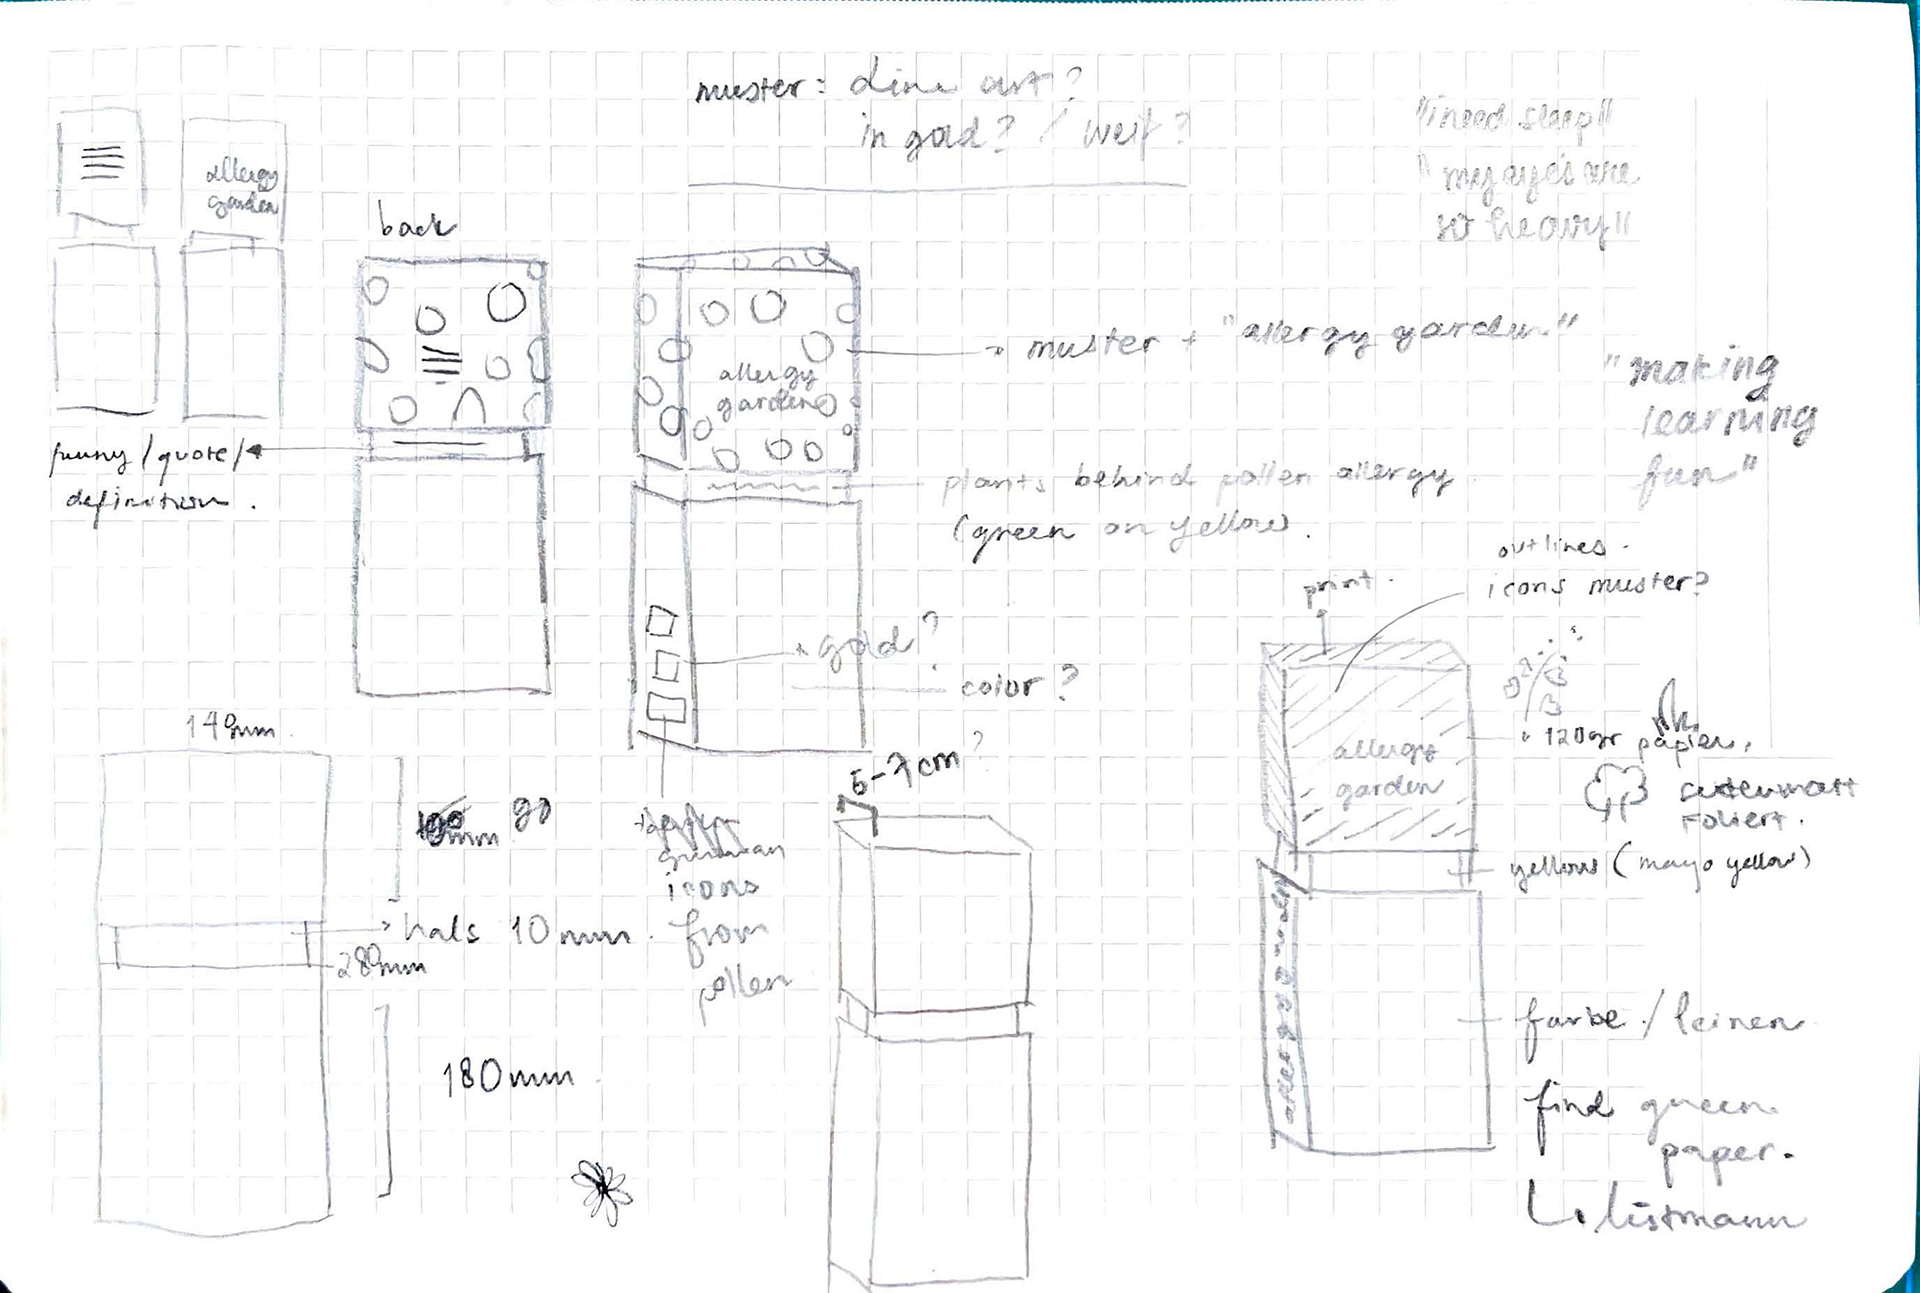 muster: line art?
in gold? / weiß?
"i need sleep"
"my eyes are
so heavy"
allergy
garden
back
allergy
garden
→ muster + "allergy garden"
"making
learning
fun"
funny / quote /
definition.
plants behind pollen allergy
(green on yellow).
outlines.
icons muster?
print.
gold?
color?
allergy
garden
120gr papier,
seidenmatt
foliert.
yellow (mayo yellow)
149mm
90
mm
5-7cm?
german
icons
from
pollen
hals 10mm.
280mm
180mm
farbe / leinen
find green
paper.